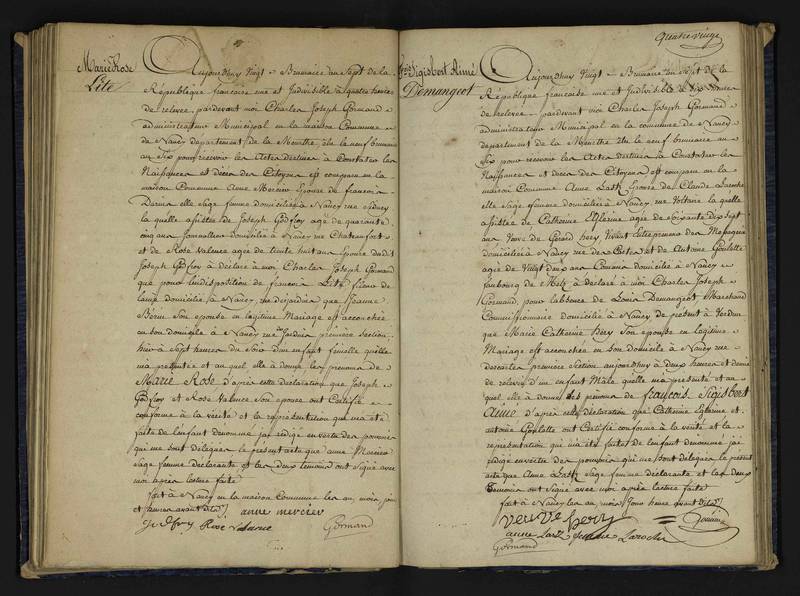 Marie Rose
Lite
Aujourdhuy Vingt Brumaire an Sept de la
République francaise une et Indivisible à quatre heures
de relevée, pardevant moi Charles Joseph Gormand
administrateur Municipal en la maison Commune
de Nancy département de la Meurthe, élu le neuf brumaire
an Six pour recevoir les Actes destinés à Constater les
Naissances et décès des Citoyens est comparu en la
maison Commune Anne Mercier Epouse de françois
elle sage femme domiciliée à Nancy rue
la quelle assistée de Joseph Godfroy agé de quarante
cinq ans Journallier domicilié à Nancy rue Chateaufort
et de Rose Valence agée de trente huit ans Epouse dudit
Joseph Godfroy à déclaré à moi Charles Joseph Gormand
que pour l'indisposition de francois Lite
domicilié à Nancy rue des jardin que Jeanne
son epouse en légitime Mariage est accouchée
en son domicile à Nancy rue Jardin première section
hier à Sept heures du Soir d'un enfant femelle quelle
ma présentée et au quel elle à donné les prenoms de
Marie Rose d'après cette déclaration que Joseph
Godfroy et Rose Valence son epouse ont Certifié
conforme à la vérité et la représentation qui ma été
faite de l'enfant denommé jai rédigé en vertu des pouvoirs
qui me sont délégués le présent acte que anne Mercier
sage femme déclarante et les deux temoins ont signé avec
moi après lecture faite
fait à Nancy en la maison Commune les an mois jour
et heures avant dits
anne mercier
Rose valance
Gormand
Quatre vingt
fçois Sigisbert Aimé
Demangeot
Aujourdhuy Vingt Brumaire an Sept de la
République francaise une et Indivisible à
de relevée pardevant moi Charles Joseph Gormand
administrateur Municipal en la commune de Nancy
département de la Meurthe élu le neuf brumaire an
Six pour recevoir les Actes destinés à Constater les
Naissances et décès des Citoyens est comparu en la
maison Commune Anne Epouse de Claude
elle sage femme domiciliée à Nancy rue Voltaire la quelle
assistée de Catherine agée de Soixante dix sept
ans Veuve de Gerard hery Vivant Entrepreneur des Messageries
domiciliée à Nancy rue de et de Antoine Goulotte
agé de Vingt deux ans Commis domicilié à Nancy
faubourg de Metz à déclaré à moi Charles Joseph
Gormand, pour labsence de Louis Demangeot Marchand
Commissionnaire domicilié à Nancy de présent à Verdun
que Marie Catherine hery Son epouse en légitime
Mariage est accouchée en Son domicile à Nancy rue
descartes première Section aujourdhuy à deux heures et demie
de relevée d'un enfant Male quelle ma présenté et au
quel elle à donné les prenoms de françois Sigisbert
Aimé d'après cette déclaration que Catherine et
antoine Goulotte ont Certifié conforme à la vérité et la
représentation qui ma été faite de l'enfant denommé jai
rédigé en vertu des pouvoirs qui me sont délégués le présent
acte que Anne Sage femme déclarante et les deux
Temoins ont signé avec moi après lecture faite
fait à Nancy les an mois Jour heure avant dits
veuve hery
anne
Gormand